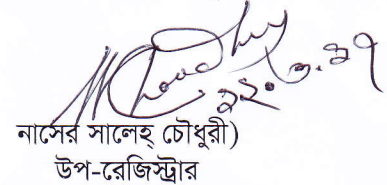 MChoudhury
নাসের সালেহ্ চৌধুরী)
উপ-রেজিস্ট্রার